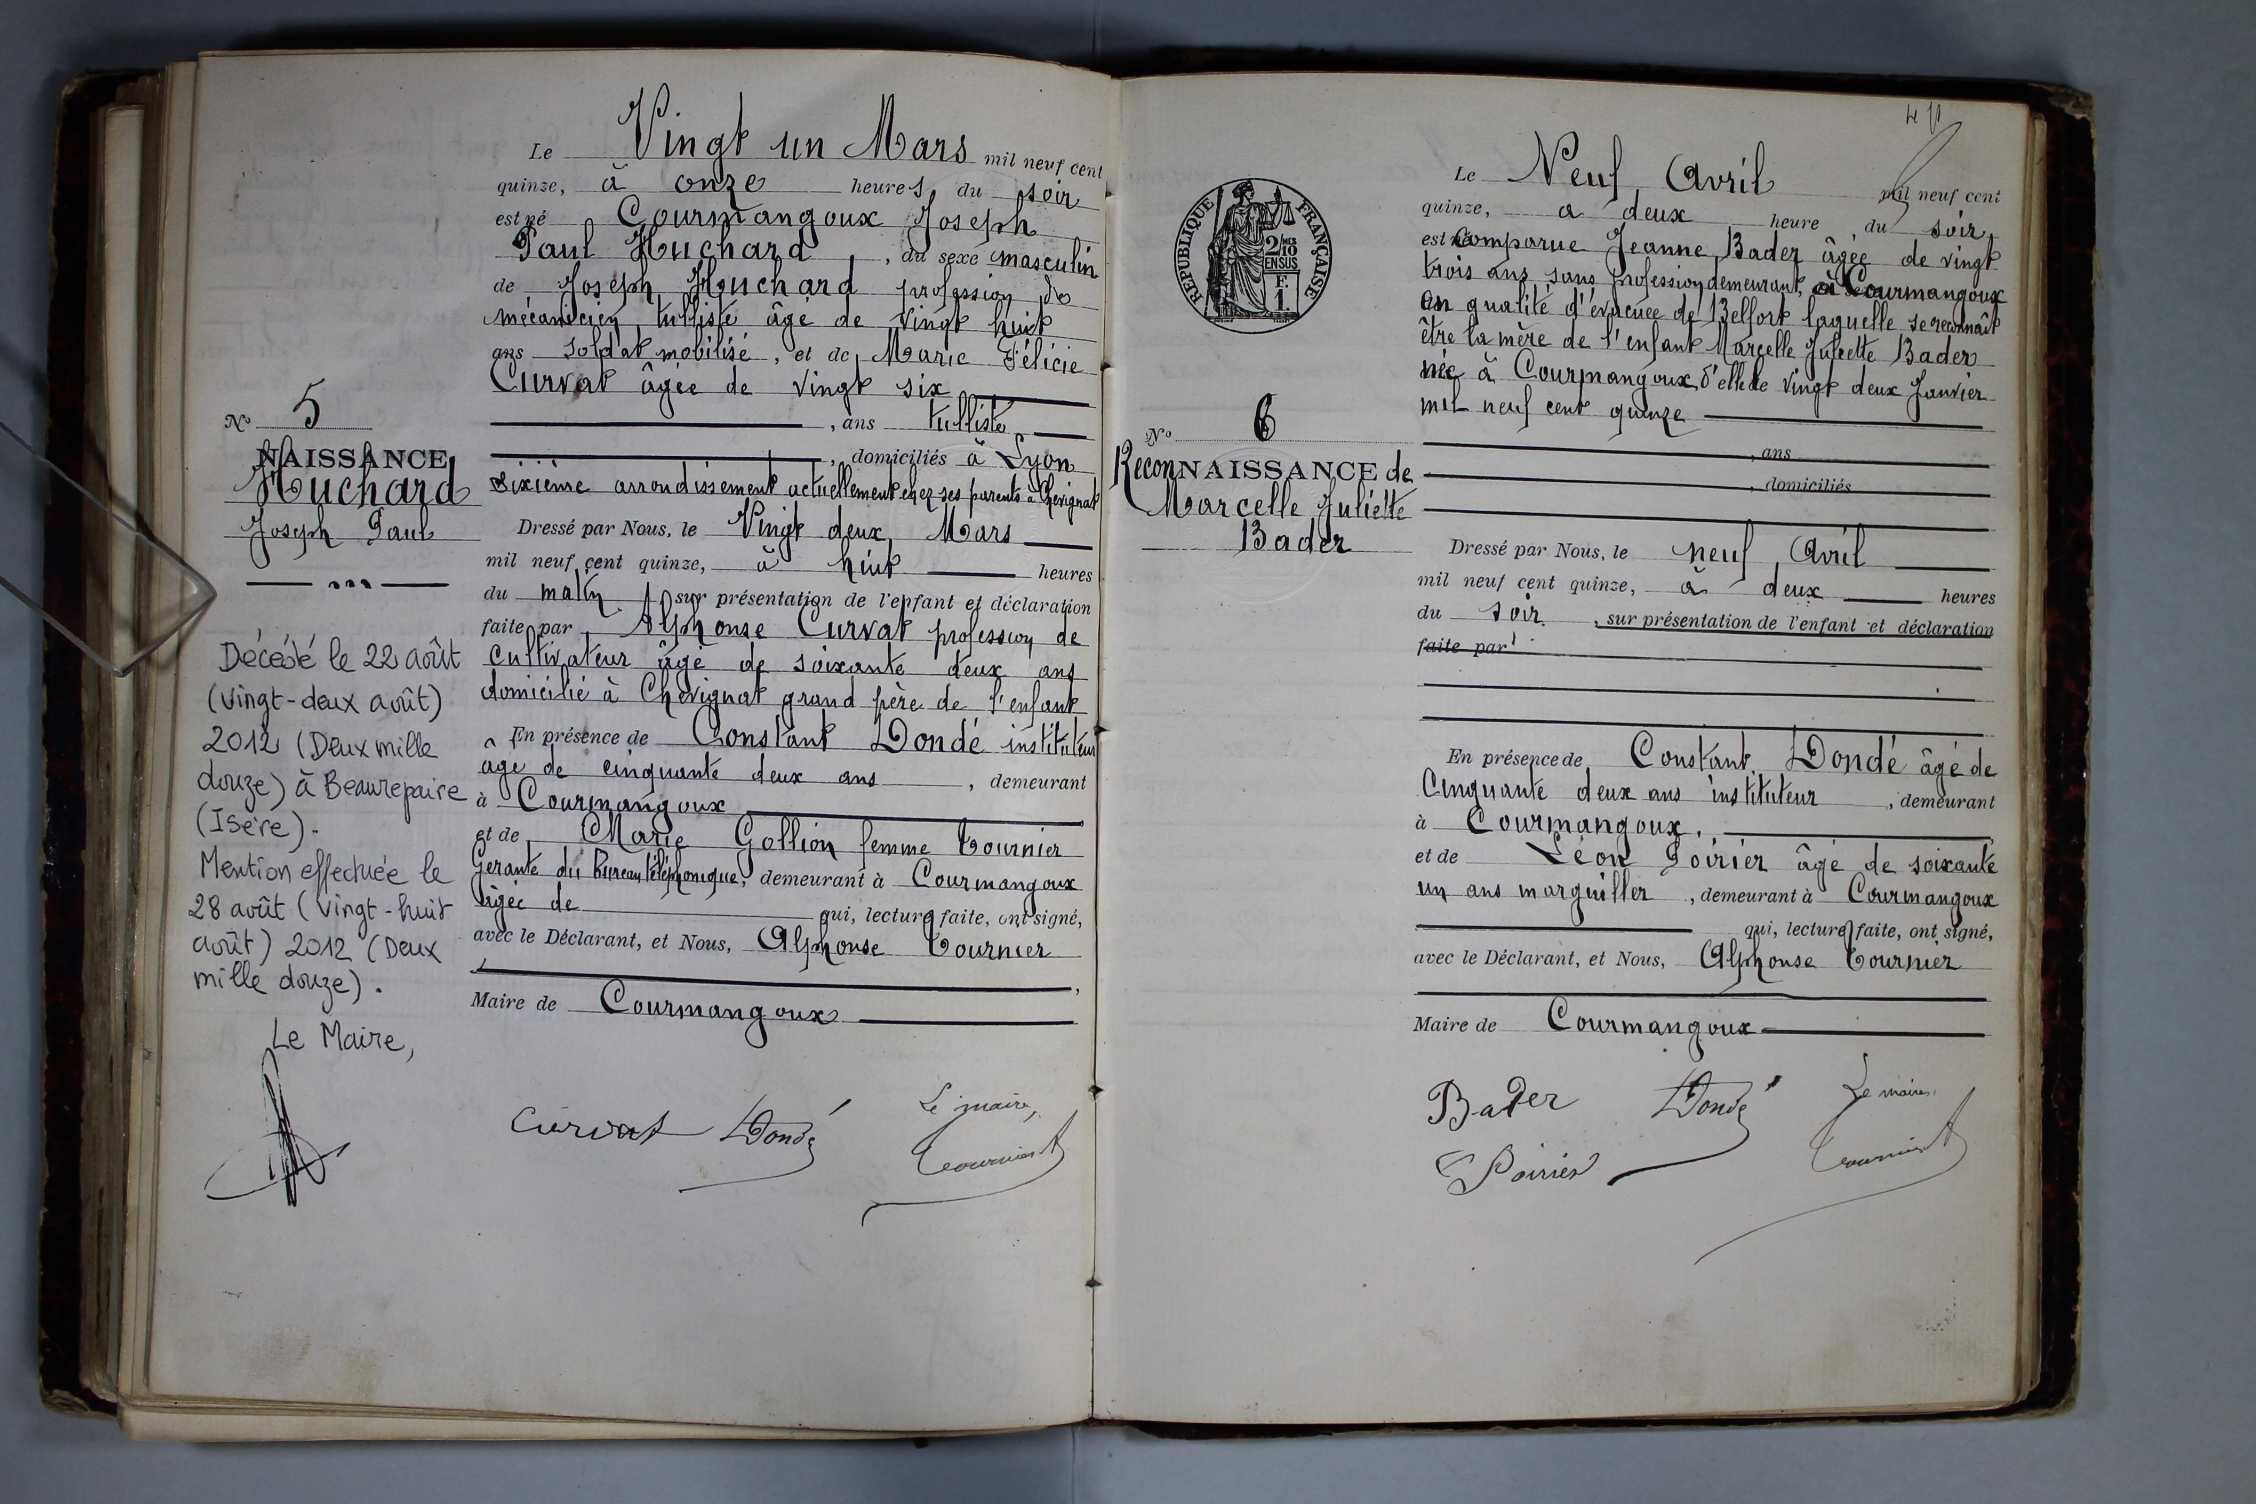 Le Vingt un Mars mil neuf cent
quinze, à onze heures du soir
est né Courmangoux Joseph
Paul Huchard, du sexe masculin
de Joseph Huchard profession de
mécanicien tulliste âgé de vingt huit
ans soldat mobilisé, et de Marie Félicie
Curvat âgée de vingt six
, ans tulliste
, domiciliés à Lyon
sixième arrondissement actuellement chez ses parents à Chevignat
Dressé par Nous, le Vingt deux Mars
mil neuf cent quinze, à huit heures
du matin sur présentation de l'enfant et déclaration
faite par Alphonse Curvat profession de
cultivateur âgé de soixante deux ans
domicilié à Chevignat grand père de l'enfant
En présence de Constant Dondé instituteur
âgé de cinquante deux ans, demeurant
à Courmangoux
et de Marie Gollion femme Tournier
Gérante du Bureau téléphonique, demeurant à Courmangoux
âgée de qui, lecture faite, ont signé,
avec le Déclarant, et Nous, Alphonse Tournier
,
Maire de Courmangoux
Curvat Dondé Le maire,
Tournier A
No 5
NAISSANCE
Huchard
Joseph Paul
Décédé le 22 août
(vingt-deux août)
2012 (Deux mille
douze) à Beaurepaire
(Isère).
Mention effectuée le
28 août (vingt-huit
août) 2012 (Deux
mille douze).
Le Maire,
RÉPUBLIQUE FRANÇAISE
2/10
EN SUS
F.
1.
No 6
ReconNAISSANCE de
Marcelle Juliette
Bader
Le Neuf Avril mil neuf cent
quinze, a deux heure du soir
est né comparue Jeanne Bader âgée de vingt
trois ans, sans profession demeurant, à Courmangoux
en qualité d'évacuée de Belfort laquelle se reconnaît
être la mère de l'enfant Marcelle Juliette Bader
née à Courmangoux d'elle le vingt deux Janvier
mil neuf cent quinze
, ans
, domiciliés
Dressé par Nous, le neuf Avril
mil neuf cent quinze, à deux heures
du soir, sur présentation de l'enfant et déclaration
faite par
En présence de Constant Dondé âgé de
Cinquante deux ans instituteur, demeurant
à Courmangoux.
et de Léon Poirier âgé de soixante
un ans marguiller, demeurant à Courmangoux
qui, lecture faite, ont signé,
avec le Déclarant, et Nous, Alphonse Tournier
Maire de Courmangoux
Bader Dondé Le maire,
L Poirier Tournier A